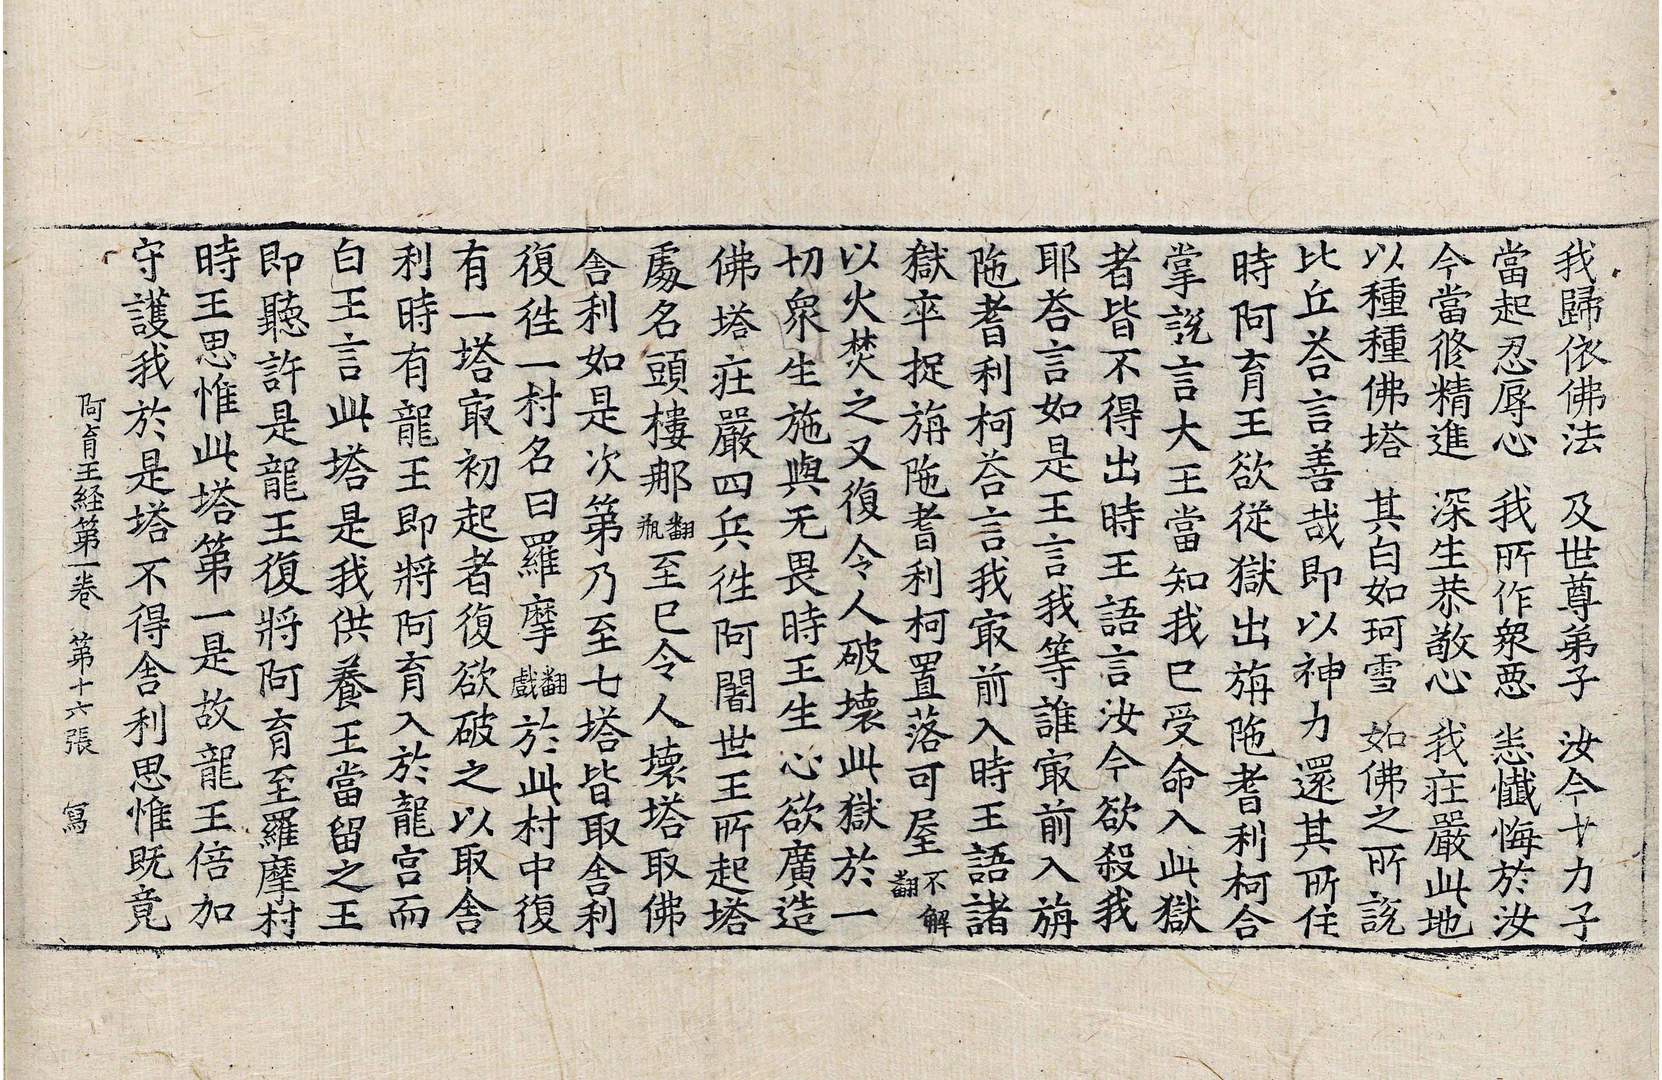 我歸依佛法　及世尊弟子　汝今十力子
當起忍辱心　我所作衆惡　悉懺悔於汝
今當修精進　深生恭敬心　我莊嚴此地
以種種佛塔　其白如珂雪　如佛之所說
比丘荅言善哉即以神力還其所住
時阿育王欲從獄出旃陁耆利柯合
掌說言大王當知我已受命入此獄
者皆不得出時王語言汝今欲殺我
耶荅言如是王言我等誰㝡前入旃
陁耆利柯荅言我㝡前入時王語諸
獄卒捉旃陁耆利柯置落可屋翻不解
以火焚之又復令人破壞此獄於一
切衆生施與无畏時王生心欲廣造
佛塔莊嚴四兵徃阿闍世王所起塔
處名頭樓那翻瓶至已令人壞塔取佛
舍利如是次第乃至七塔皆取舍利
復徃一村名曰羅摩翻戲於此村中復
有一塔㝡初起者復欲破之以取舍
利時有龍王即將阿育入於龍宮而
白王言此塔是我供養王當留之王
即聽許是龍王復將阿育至羅摩村
時王思惟此塔第一是故龍王倍加
守護我於是塔不得舍利思惟既竟
阿育王経第一卷　第十六張　寫